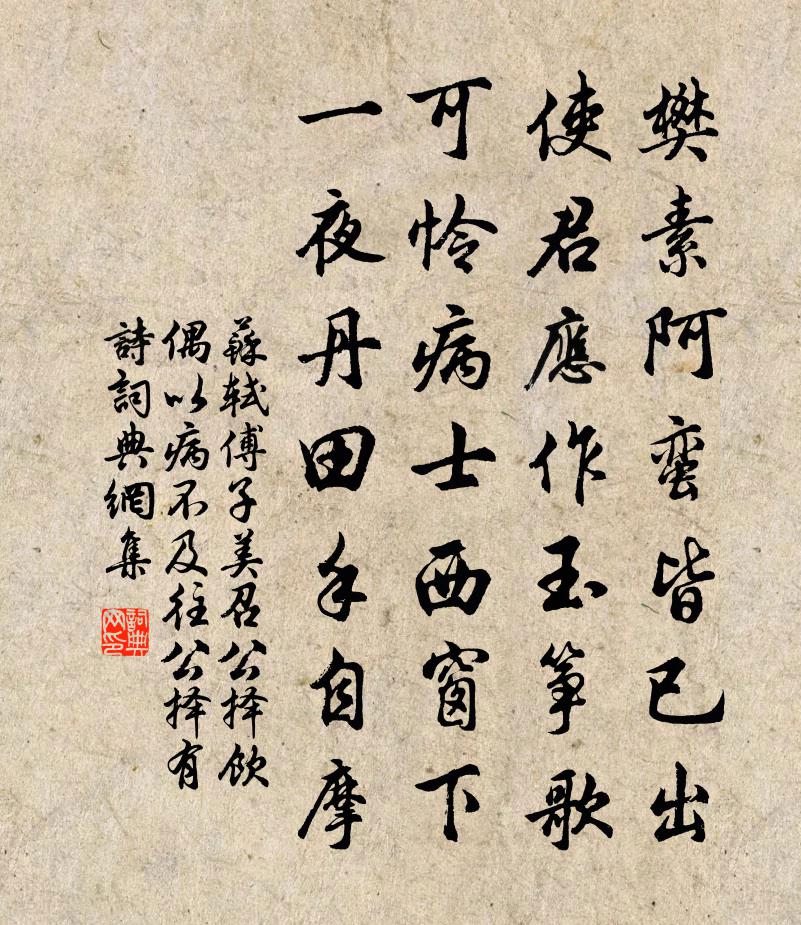 樊素阿蛮皆已出
使君應作玉筝歌
可怜病士西窗下
一夜丹田手自摩
蘇軾傅子美召公择飲
偶以病不及往公择有
詩詞典網集
詞典网印